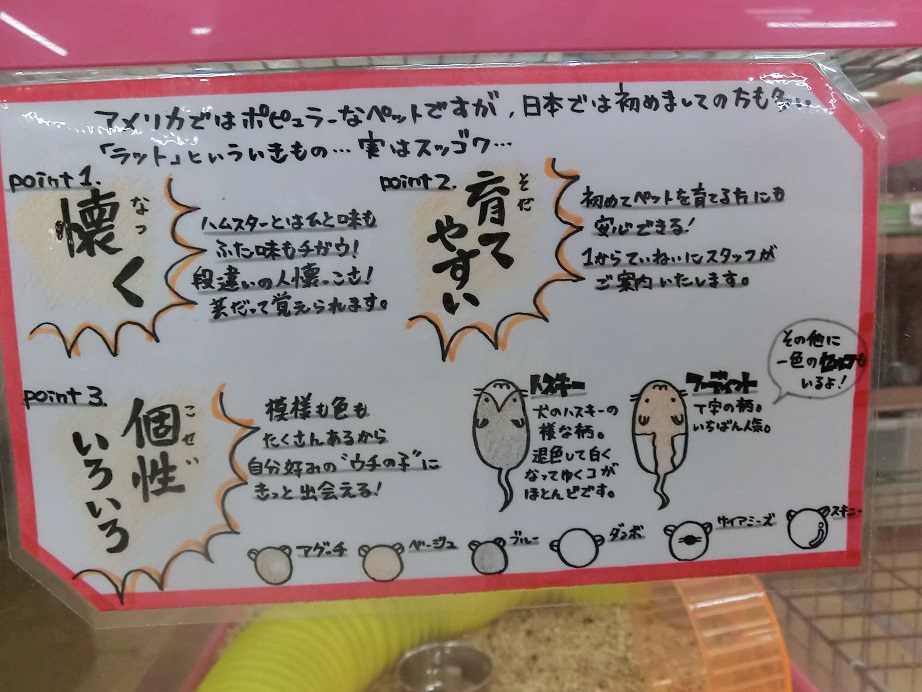 アメリカではポピュラーなペットですが、日本では初めましての方も多...
「ラット」といういきもの…実はスッゴク…
point1.
懐く
なつ
ハムスターとはひと味も
ふた味もチガウ！
段違いの人懐っこさ！
芸だって覚えられます。
point2.
育て
やすい
そだ
初めてペットを育てる方にも
安心できる！
1からていねいにスタッフが
ご案内いたします。
point3.
個性
いろいろ
こせい
模様も色も
たくさんあるから
自分好みの"ウチの子"に
きっと出会える！
ハスキー
犬のハスキーの
様な柄。
退色して白く
なってゆくコが
ほとんどです。
フーディット
丁字の柄。
いちばん人気。
その他に
一色の
もいるよ！
アグーチ
ベージュ
ブルー
ダンボ
サイアミーズ
スキニー